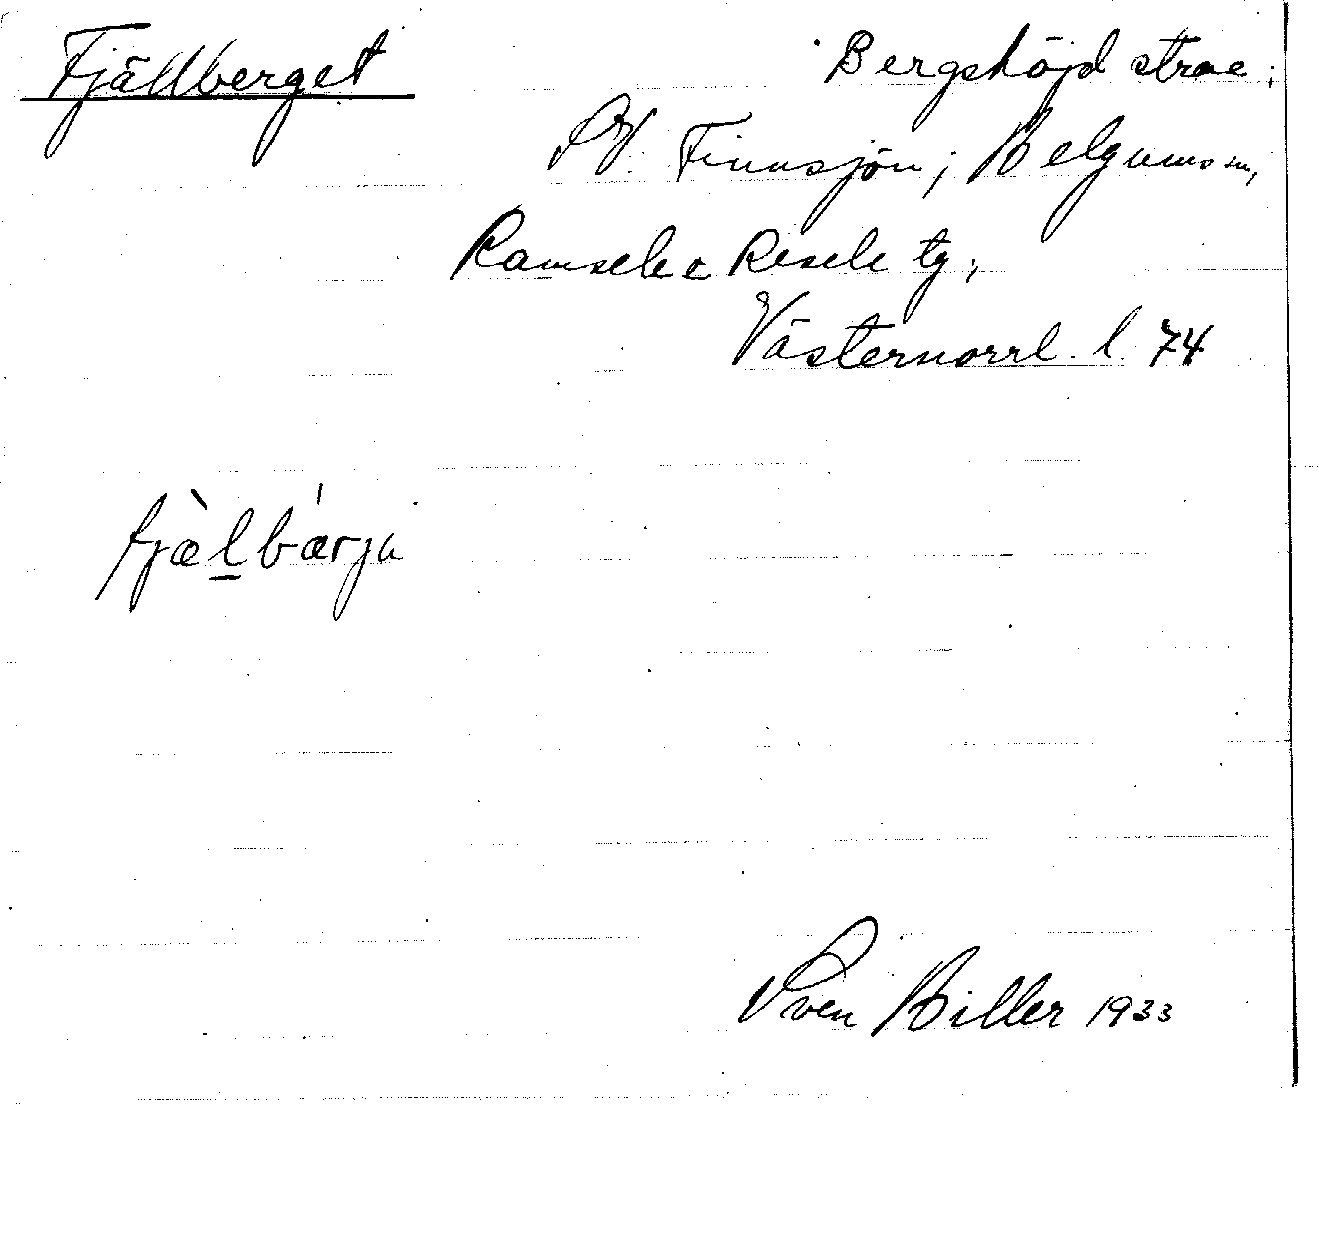 Fjällberget
Bergshöjd strax
SV. Finnsjön; Helgums sn,
Ramsele o Resele tg,
Västernorrl. l. 74
fjæ̀lbǽrjɑ
Sven Hiller 1933